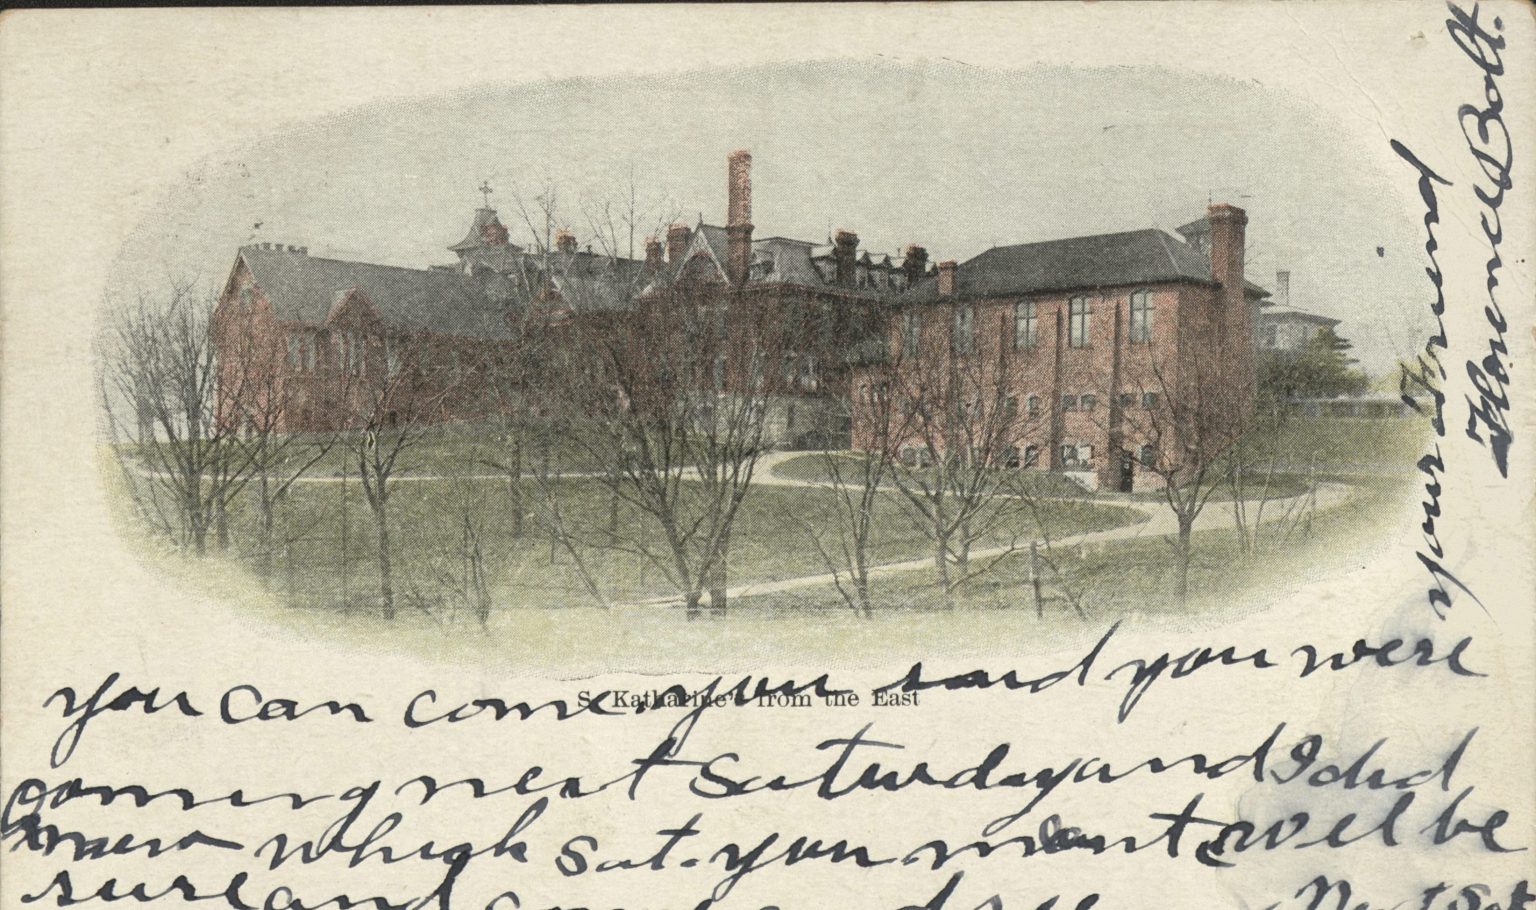 S. Katharine's from the East
you can come. you said you were
coming next Saturday and I did
which Sat. you ment will be
sure and come and see Next Sat
your Friend
Florence Bolt.